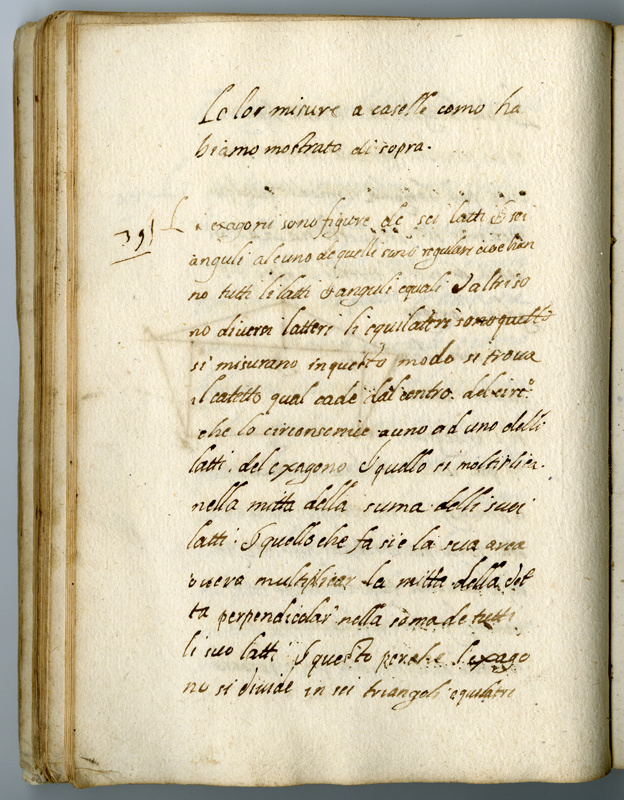 Le lor misure a caselle como ha
biamo mostrato di sopra.
39
Li exagoni sono figure de sei latti & sei
anguli alcuno de quelli sono regulari cioe han
no tutti li latti & anguli equali & altri so
no diversi latteri li equilateri sono questo
si misurano in questo modo si trova
il catetto qual cade dal centro del circ.o
che lo circonscrive a uno ad uno delli
latti del exagono & quello si moltiplica
nella mitta della suma delli suoi
latti. & quello che fa si e la sua area
overa multiplicar la mitta della det
ta perpendicolar nella soma de tutti
li suo latti & questo perche l exago
no si divide in sei triangoli equilatri